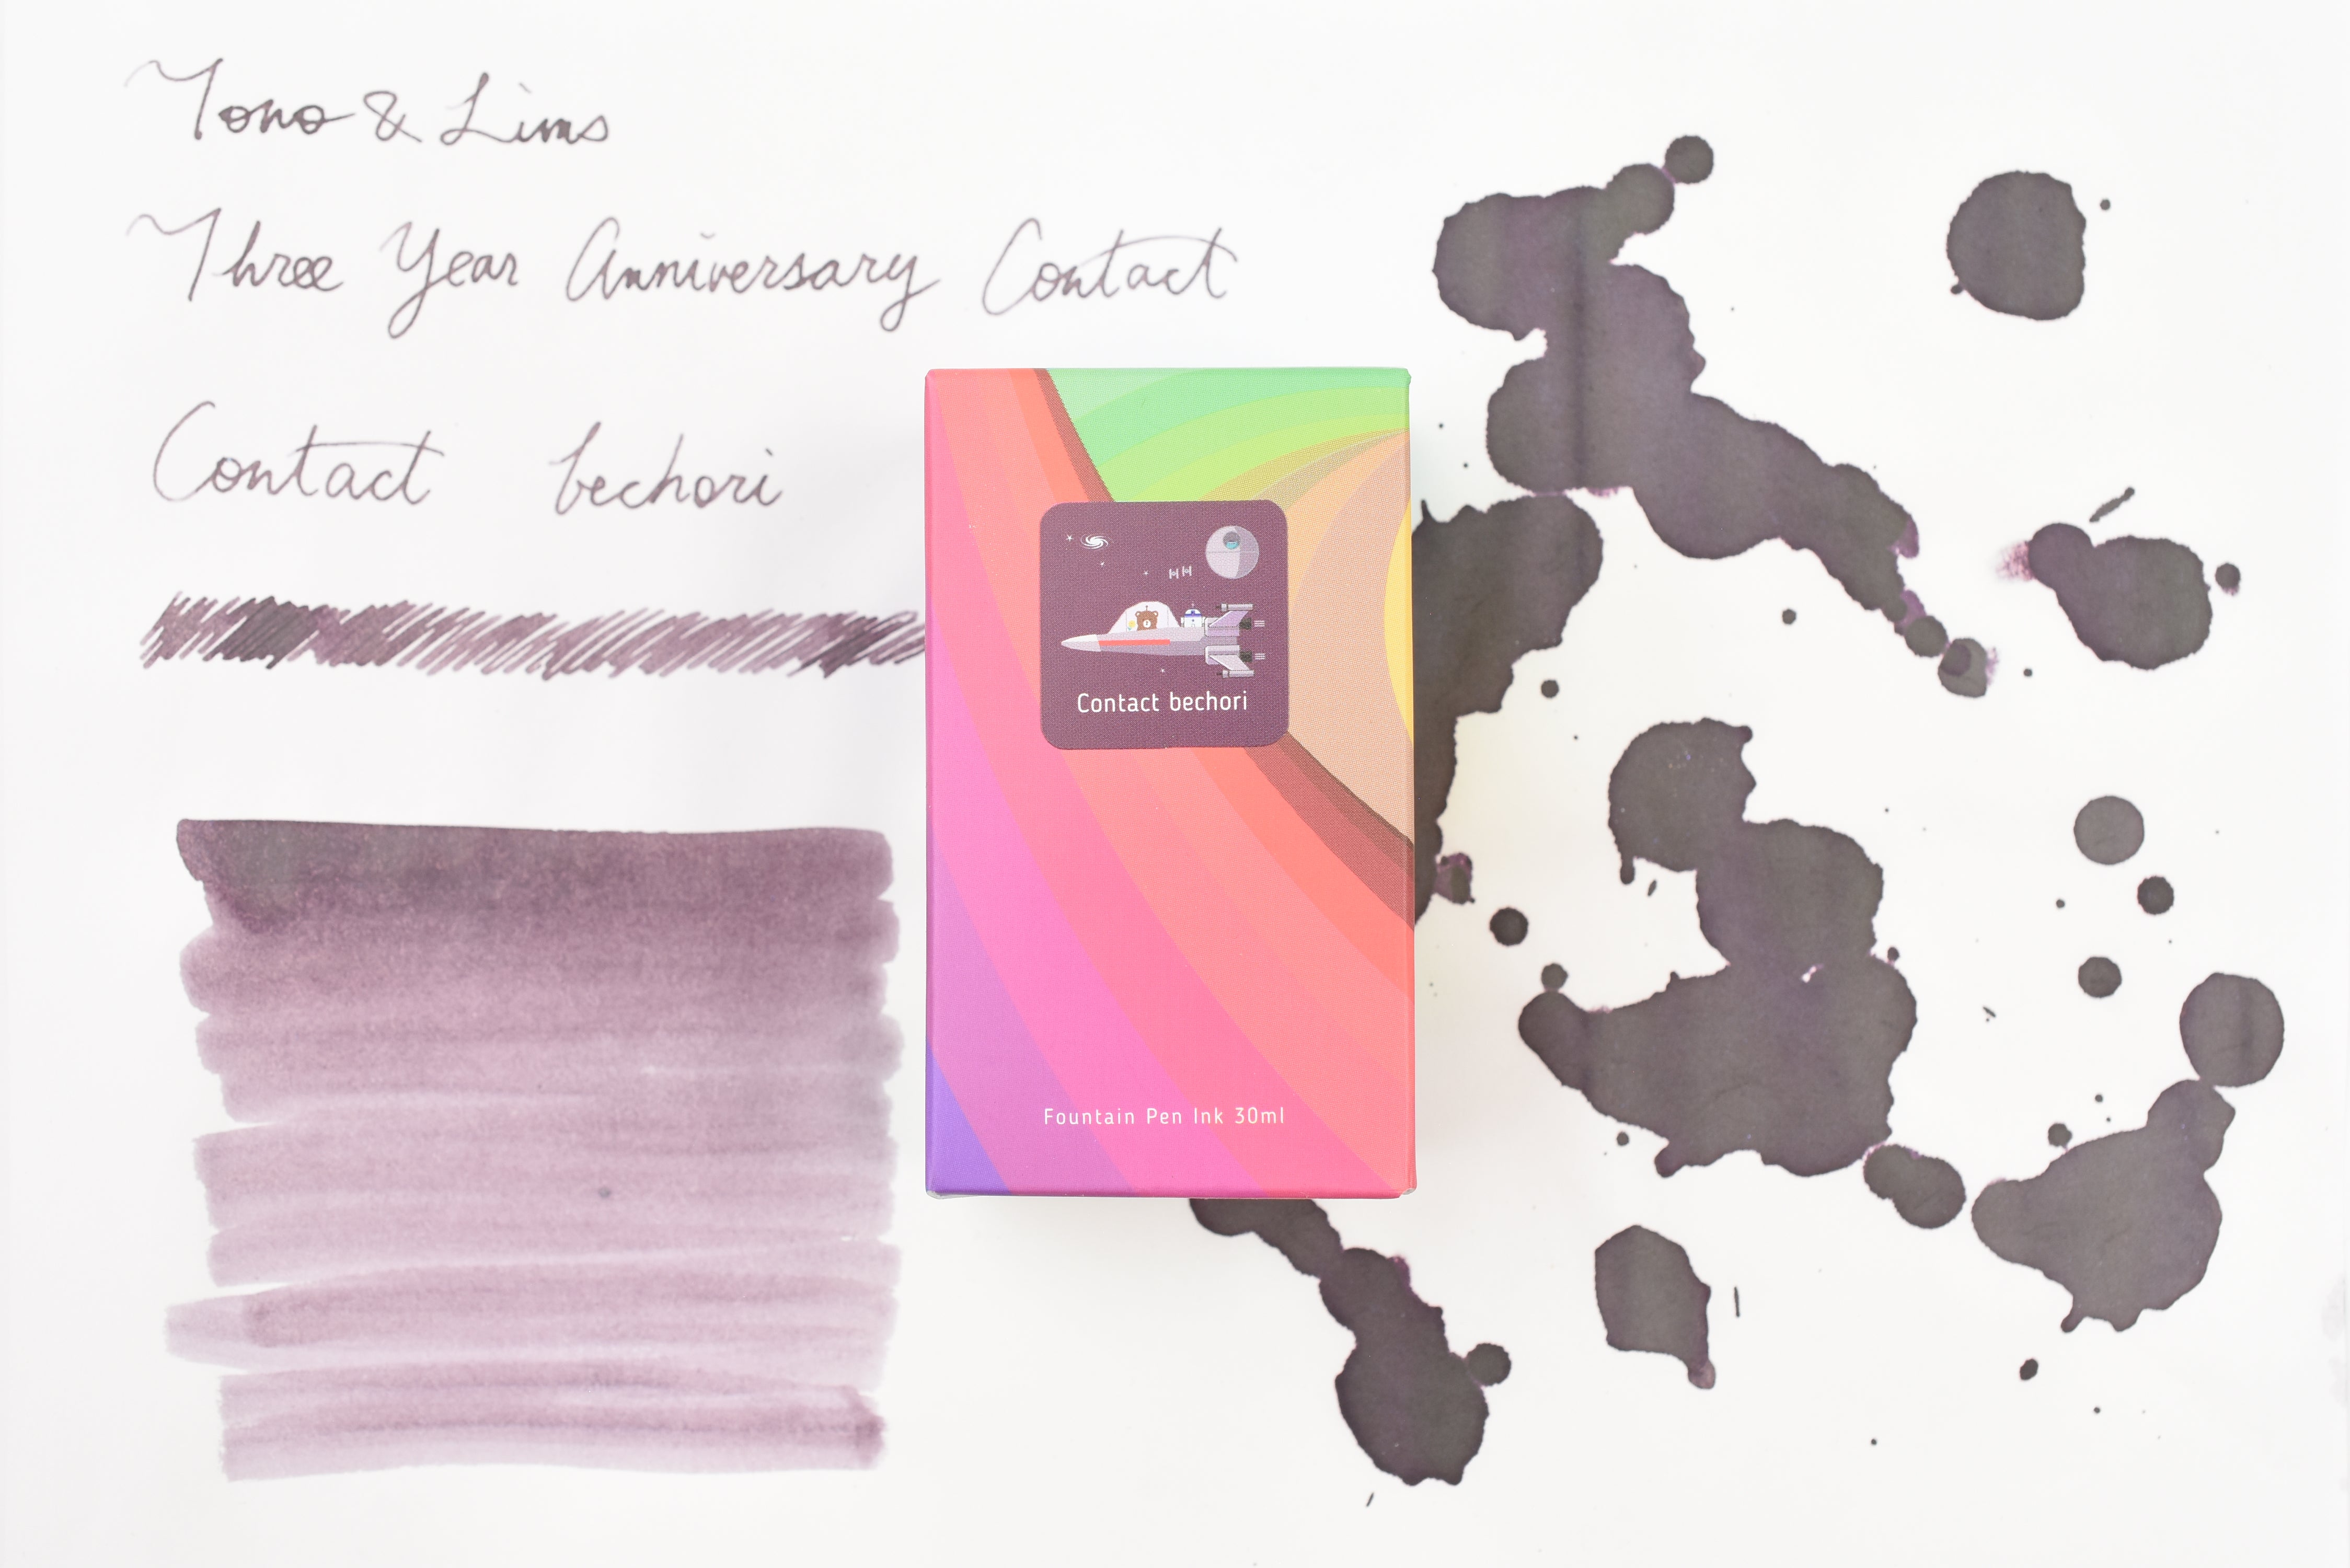 Tono & Lims
Three Year Anniversary Contact
Contact bechori
Contact bechori
Fountain Pen Ink 30ml